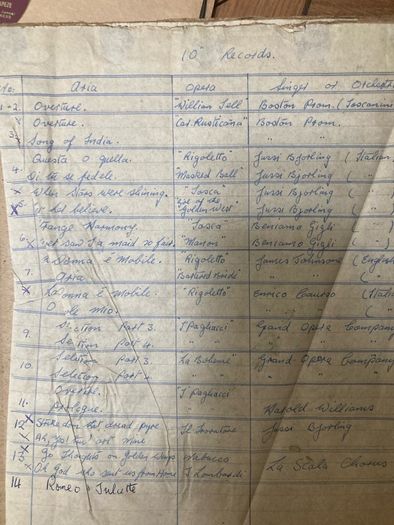 10" Records.
No. Aria Opera Singer or Orchestra
1-2. Overture. "William Tell" Boston Prom. (Toscanini
x Overture. "Cav. Rusticana" Boston Prom.
3 Song of India. " "
Questa o quella. "Rigoletto" Jussi Bjorling (Italian
4. Di tu se fedele. "Masked Ball" Jussi Bjorling ( "
x When Stars were shining. "Tosca" Jussi Bjorling ( "
x5. let her believe. "Girl of the Golden West" Jussi Bjorling ( "
Strange Harmony. "Tosca" Beniamo Gigli ( "
6. x ne'er saw I a maid so fair. "Manon" Beniamo Gigli ( " )
La Donna é Mobile. "Rigoletto" James Johnstone (English
7. Aria " ( "
x La Donna é Mobile. "Rigoletto" Enrico Caruso (Italian
O sole mio. " ( "
9. Selection Part 3. "I Pagliacci" Grand Opera Company
Selection Part 4. " " "
10. Selection Part 3. "La Boheme" Grand Opera Company
Selection Part 4. " " "
Overture. "I Pagliacci"
11. Prologue. " Harold Williams
12 x Strike down that dread pyre Il Trovatore Jussi Bjorling
x Ah, yes! thou'rt mine " "
13 x Go thoughts on golden wings Nabucco La Scala Chorus
x Oh God who sent us from Home I Lombardi " "
14 Romeo & Juliette